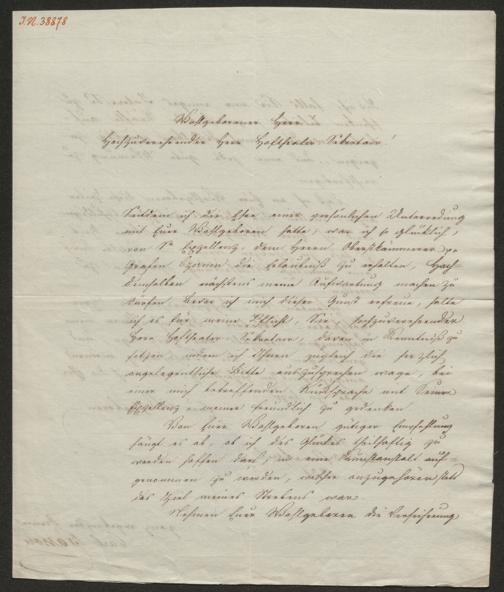 I.N. 38878
Wohlgeborener Herr
Hochzuverehrender Herr Hoftheater Sekretair!
Seitdem ich die Ehre einer persönlichen Unterredung
mit Euer Wohlgeboren hatte, war ich so glücklich,
von Sr Exzellenz, dem Herrn Oberstkämmerer
Grafen Czernin die Erlaubniß zu erhalten, Hoch
demselben nächstens meine Aufwartung machen zu
dürfen. Bevor ich mich dieser Gunst erfreue, halte
ich es für meine Pflicht, Sie, hochzuverehrender
Herr Hoftheater Sekretair, davon in Kenntniß zu
setzen, indem ich Ihnen zugleich die herzlich
angelegentliche Bitte auszusprechen wage, bei
einer mich betreffenden Rücksprache mit Seiner
Exzellenz meiner freundlich zu gedenken.
Von Euer Wohlgeboren gütiger Empfehlung
hängt es ab, ob ich des Glückes theilhaftig zu
werden hoffen darf, in eine Kunstanstalt auf-
genommen zu werden, welcher anzugehören stets
das Ziel meines Strebens war.
Nehmen Euer Wohlgeboren die Versicherung